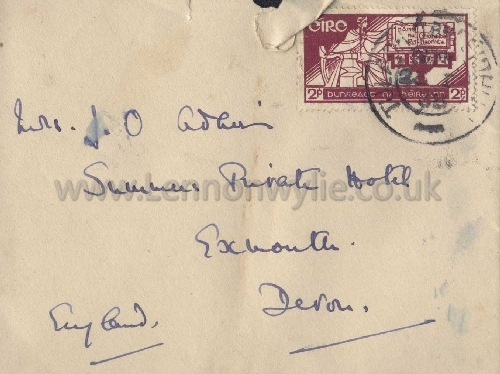 éire
2p BUNREACT NA hÉIREANN 2p
Mrs. J. O Adkins
Summer Private Hotel
www.Lennonwylie.co.uk
Exmouth.
Devon.
England.